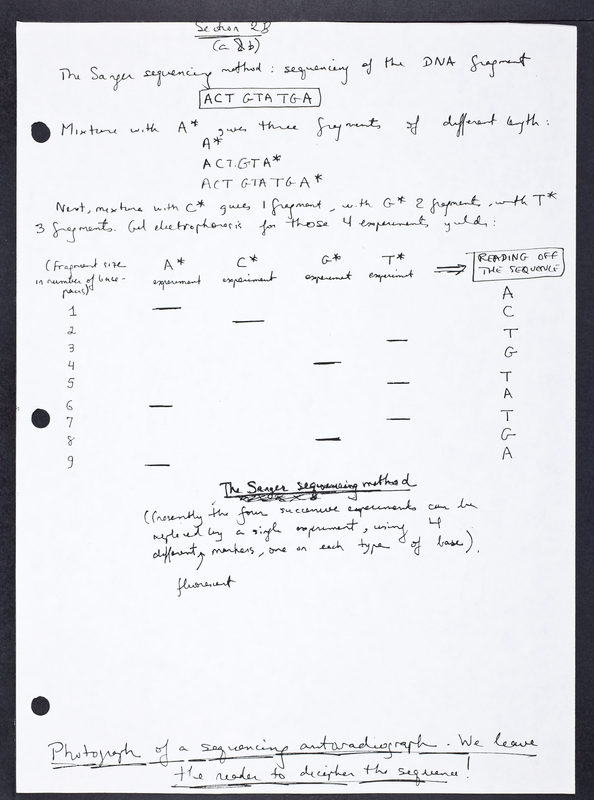 Section 2B
(a & b)
The Sanger sequencing method: sequencing of the DNA fragment
ACT GTA TGA
Mixture with A* gives three fragments of different length:
A*
ACT.GTA*
ACT GTATGA*
Next, mixture with C* gives 1 fragment, with G* 2 fragments, with T*
3 fragments. Gel electrophoresis for those 4 experiments yields:
(Fragment size in number of base-pairs)
A* experiment
C* experiment
G* experiment
T* experiment
READING OFF THE SEQUENCE
A
1 C
2 T
3 G
4 T
5 A
6 T
7 G
8 A
9
The Sanger sequencing method
(Presently the four successive experiments can be
replaced by a single experiment, using 4
different markers, one on each type of base).
fluorescent
Photograph of a sequencing autoradiograph. We leave
the reader to decipher the sequence!